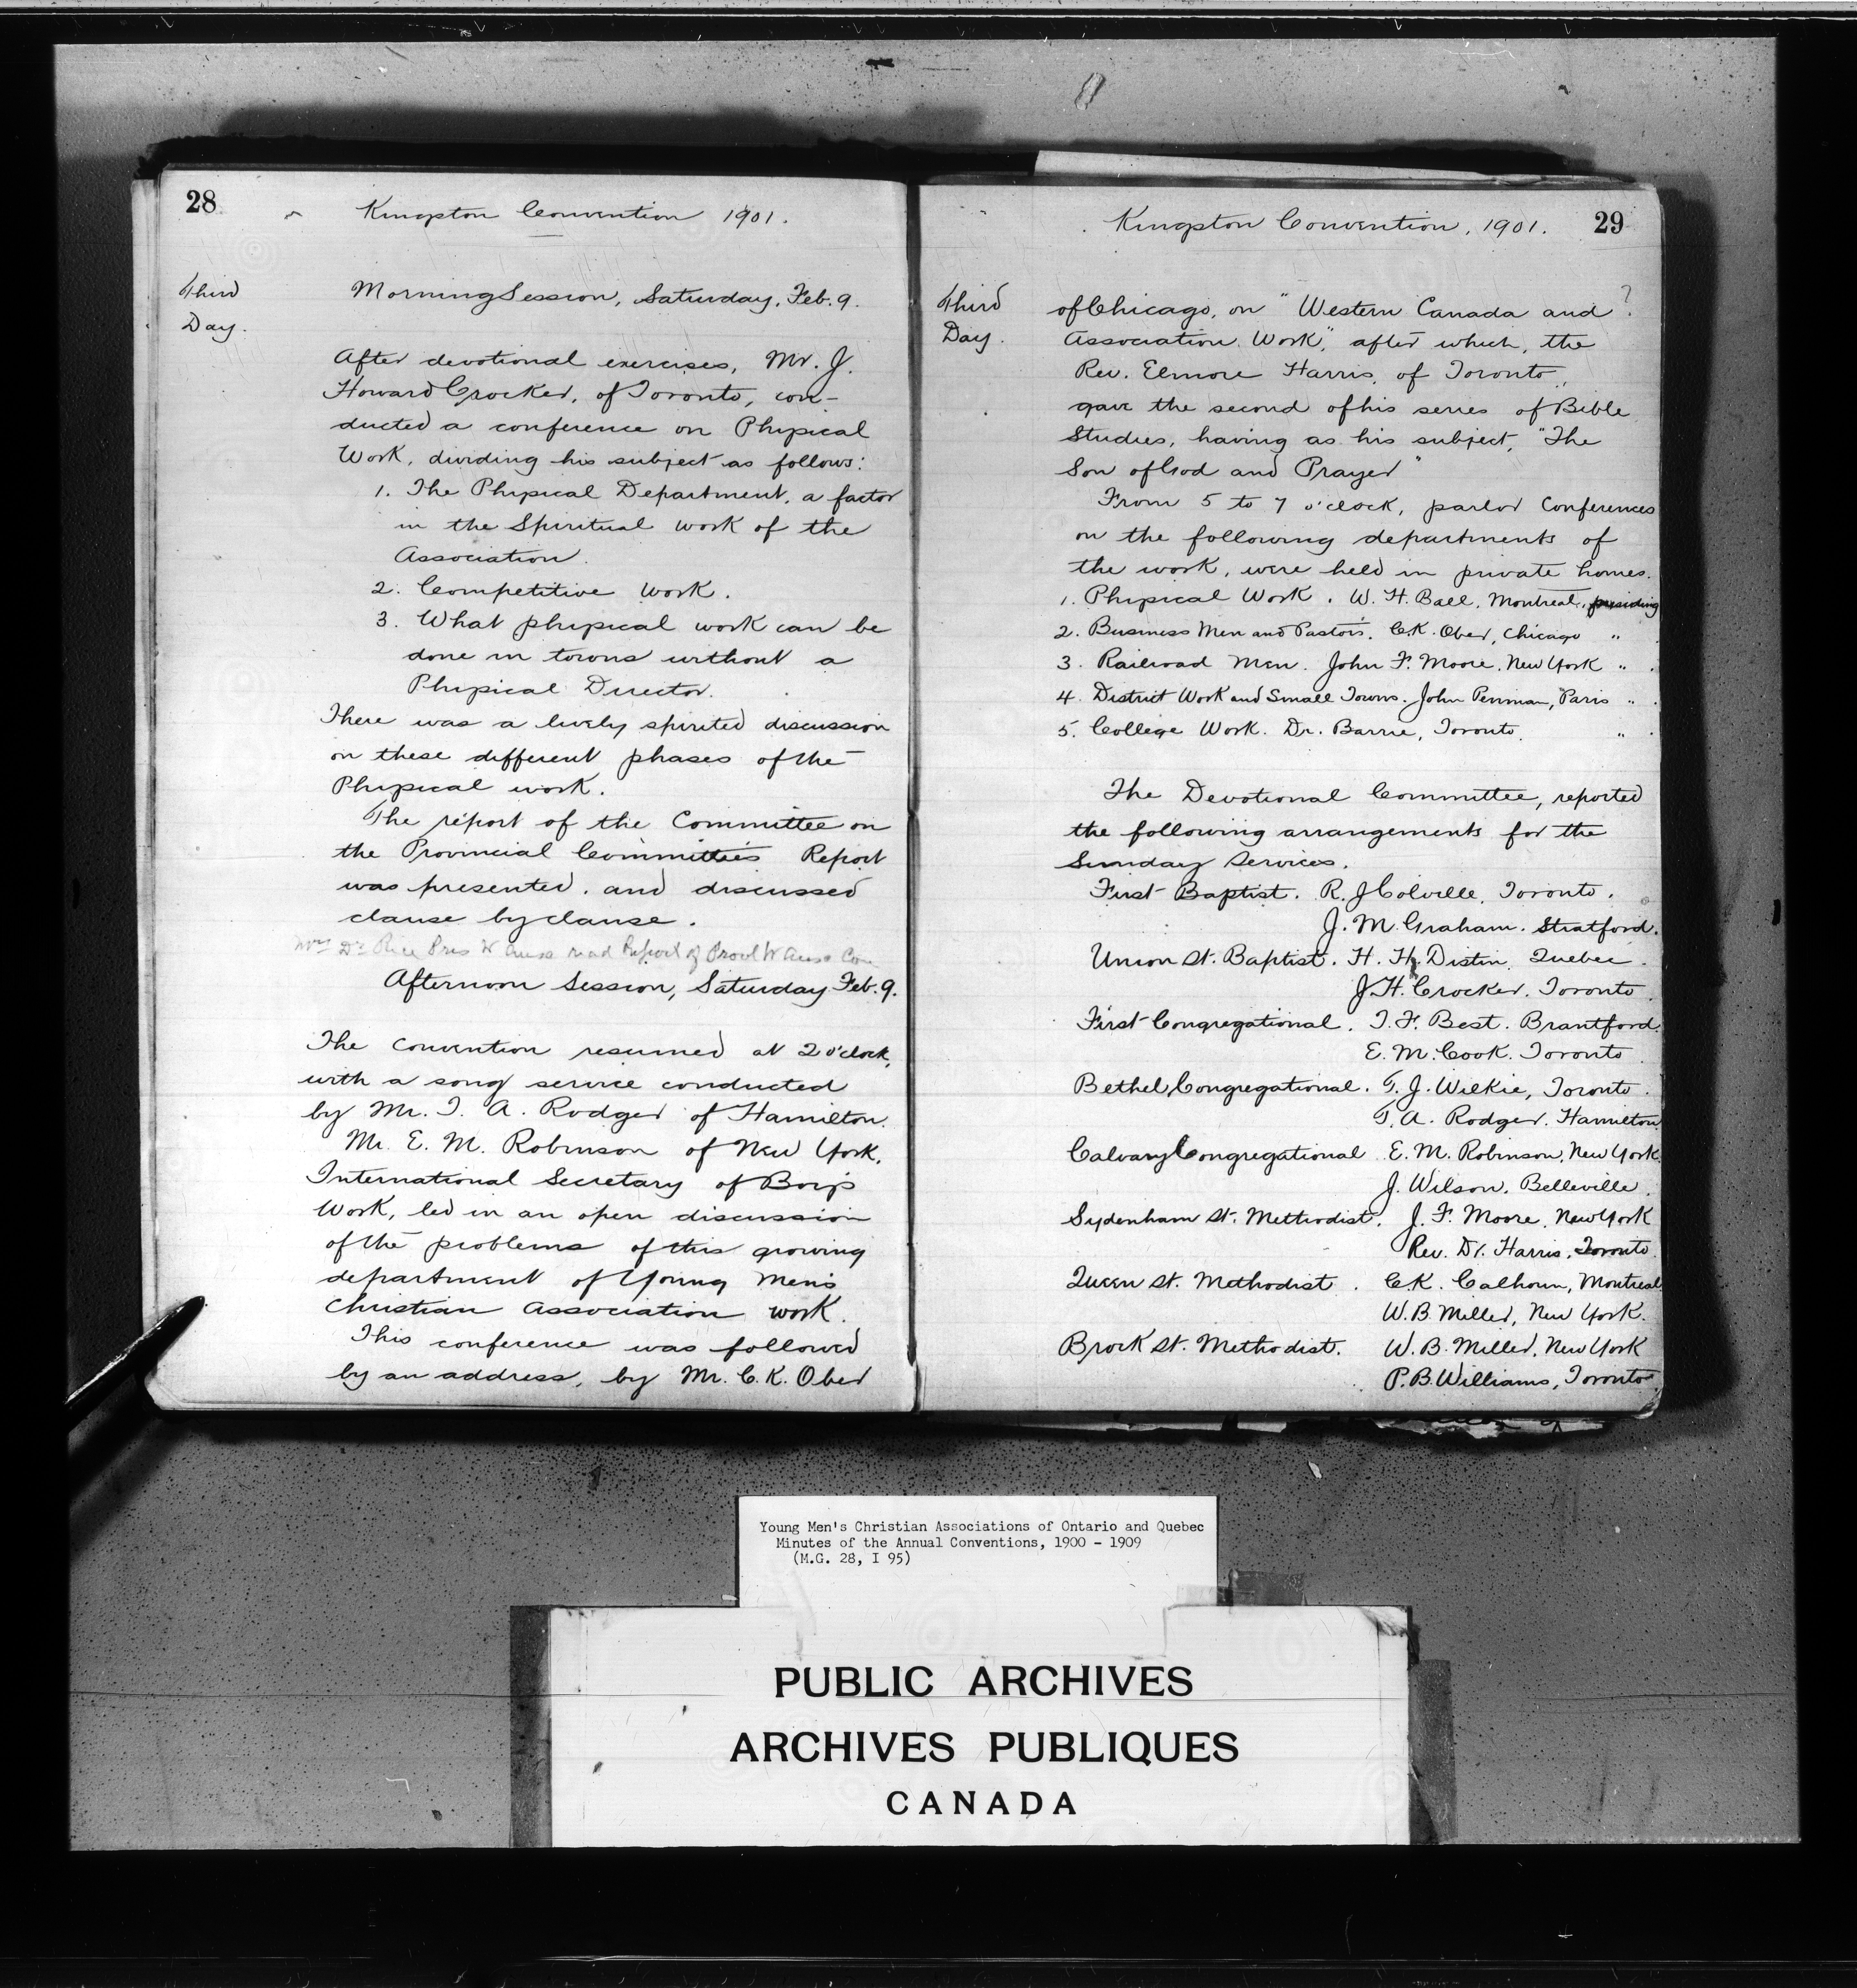 28
Kingston Convention 1901.
Third
Day.
Morning Session, Saturday, Feb. 9.
After devotional exercises, Mr. J.
Howard Crocker, of Toronto, con-
ducted a conference on Physical
Work, dividing his subject as follows:
1. The Physical Department, a factor
in the Spiritual work of the
Association.
2. Competitive work.
3. What physical work can be
done in towns without a
Physical Director.
There was a lively spirited discussion
on these different phases of the
Physical work.
The report of the Committee on
the Provincial Committee's Report
was presented, and discussed
clause by clause.
Mrs Dr Rice Pres W read Report of Provl W
Afternoon Session, Saturday Feb. 9.
The convention resumed at 2 o'clock,
with a song service conducted
by Mr. T. A. Rodger of Hamilton.
Mr. E. M. Robinson of New York,
International Secretary of Boys
Work, led in an open discussion
of the problems of this growing
department of Young Men's
Christian Association work.
This conference was followed
by an address, by Mr. C. K. Ober
Kingston Convention, 1901.
29
Third
Day.
of Chicago, on "Western Canada and ?
Association Work", after which, the
Rev. Elmore Harris, of Toronto,
gave the second of his series of Bible
Studies, having as his subject, "The
Son of God and Prayer"
From 5 to 7 o'clock, parlor Conferences
on the following departments of
the work, were held in private homes.
1. Physical Work. W. H. Ball, Montreal, presiding
2. Business Men and Pastors. C. K. Ober, Chicago "
3. Railroad Men. John F. Moore, New York "
4. District Work and Small Towns. John Penman, Paris "
5. College Work. Dr. Barrie, Toronto. "
The Devotional Committee, reported
the following arrangements for the
Sunday Services.
First Baptist. R. J Colville, Toronto.
J. M. Graham. Stratford.
Union St. Baptist. H. H. Distin, Quebec.
J. H. Crocker. Toronto.
First Congregational. T. F. Best. Brantford.
E. M. Cook. Toronto.
Bethel Congregational. T. J. Wilkie, Toronto.
T. A. Rodger. Hamilton.
Calvary Congregational E. M. Robinson, New York.
J. Wilson, Belleville.
Sydenham St. Methodist. J. F. Moore, New York
Rev. Dr. Harris, Toronto.
Queen St. Methodist. C. K. Calhoun, Montreal
W. B. Miller, New York.
Brock St. Methodist. W. B. Miller, New York
P. B. Williams, Toronto.
Young Men's Christian Associations of Ontario and Quebec
Minutes of the Annual Conventions, 1900 - 1909
(M.G. 28, I 95)
PUBLIC ARCHIVES
ARCHIVES PUBLIQUES
CANADA